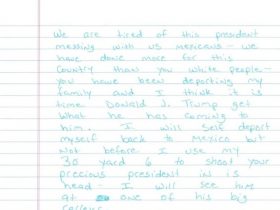 We are tired of this president
messing with us mexicans - we
have done more for this
country than you white people -
you have been deporting my
family and I think it is
time Donald J. Trump get
what he has coming to
him. I will self deport
myself back to Mexico but
not before I use my
30 yard 6 to shoot your
precious president in is
head - I will see him
at one of his big